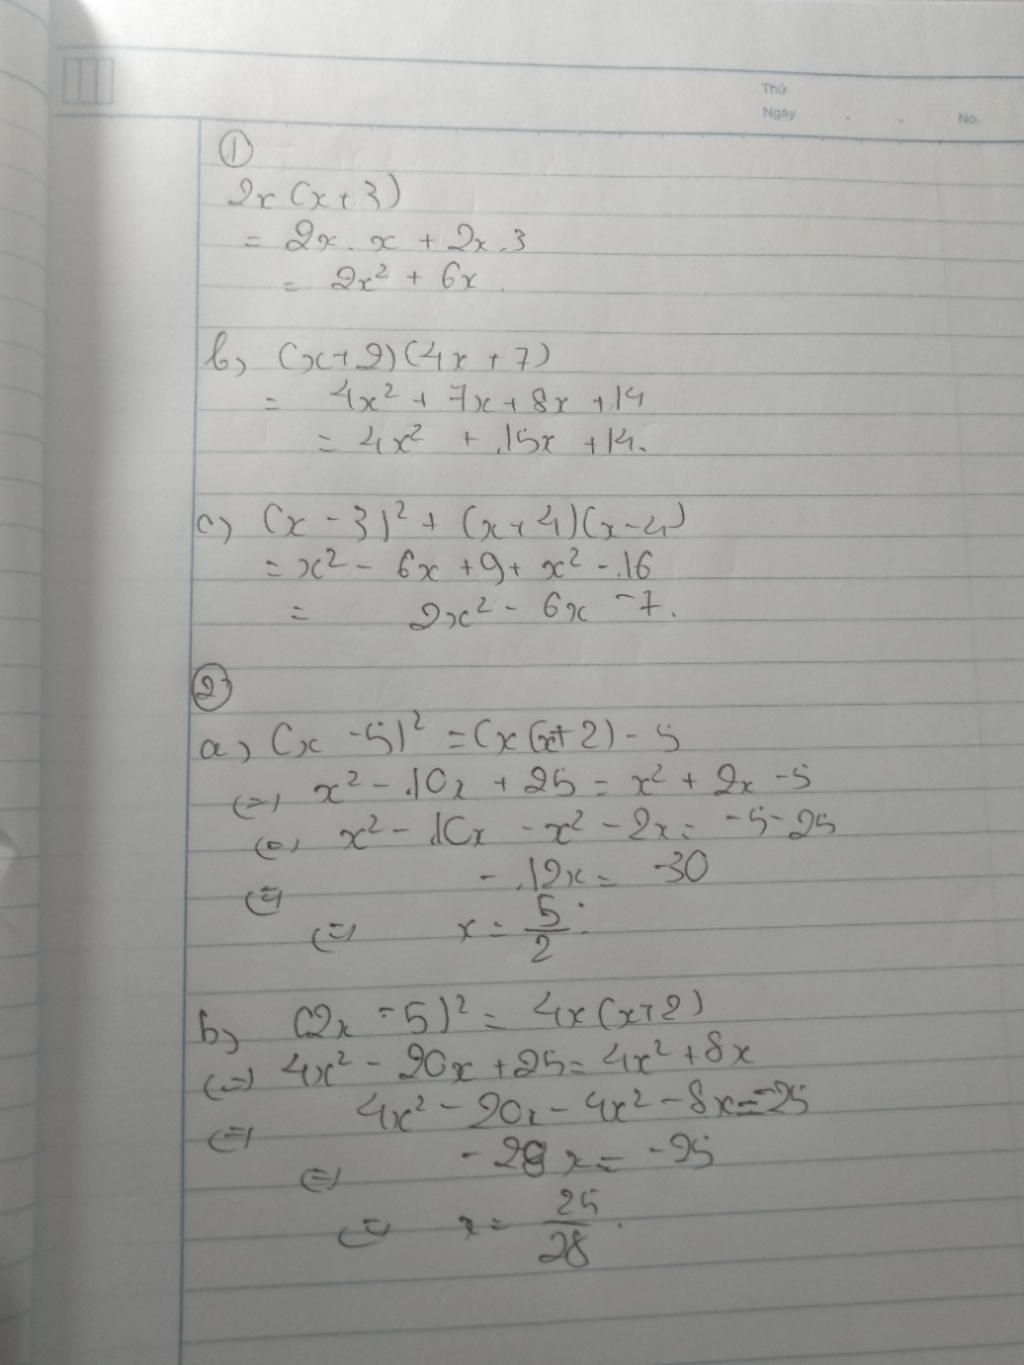 Thứ
Ngày . . No.
①
2x(x+3)
= 2x.x + 2x.3
= 2x² + 6x.
b, (x+2)(4x+7)
= 4x² + 7x + 8x + 14
= 4x² + 15x + 14.
c, (x - 3)² + (x+4)(x-4)
= x² - 6x + 9 + x² - 16
= 2x² - 6x - 7.
②
a, (x - 5)² = (x(x+2) - 5
(=) x² - 10x + 25 = x² + 2x - 5
(=) x² - 10x - x² - 2x = -5 - 25
(=) - 12x = -30
(=) x = 5/2.
b, (2x - 5)² = 4x(x+2)
(=) 4x² - 20x + 25 = 4x² + 8x
(=) 4x² - 20x - 4x² - 8x = -25
(=) - 28x = -25
(=) x = 25/28.